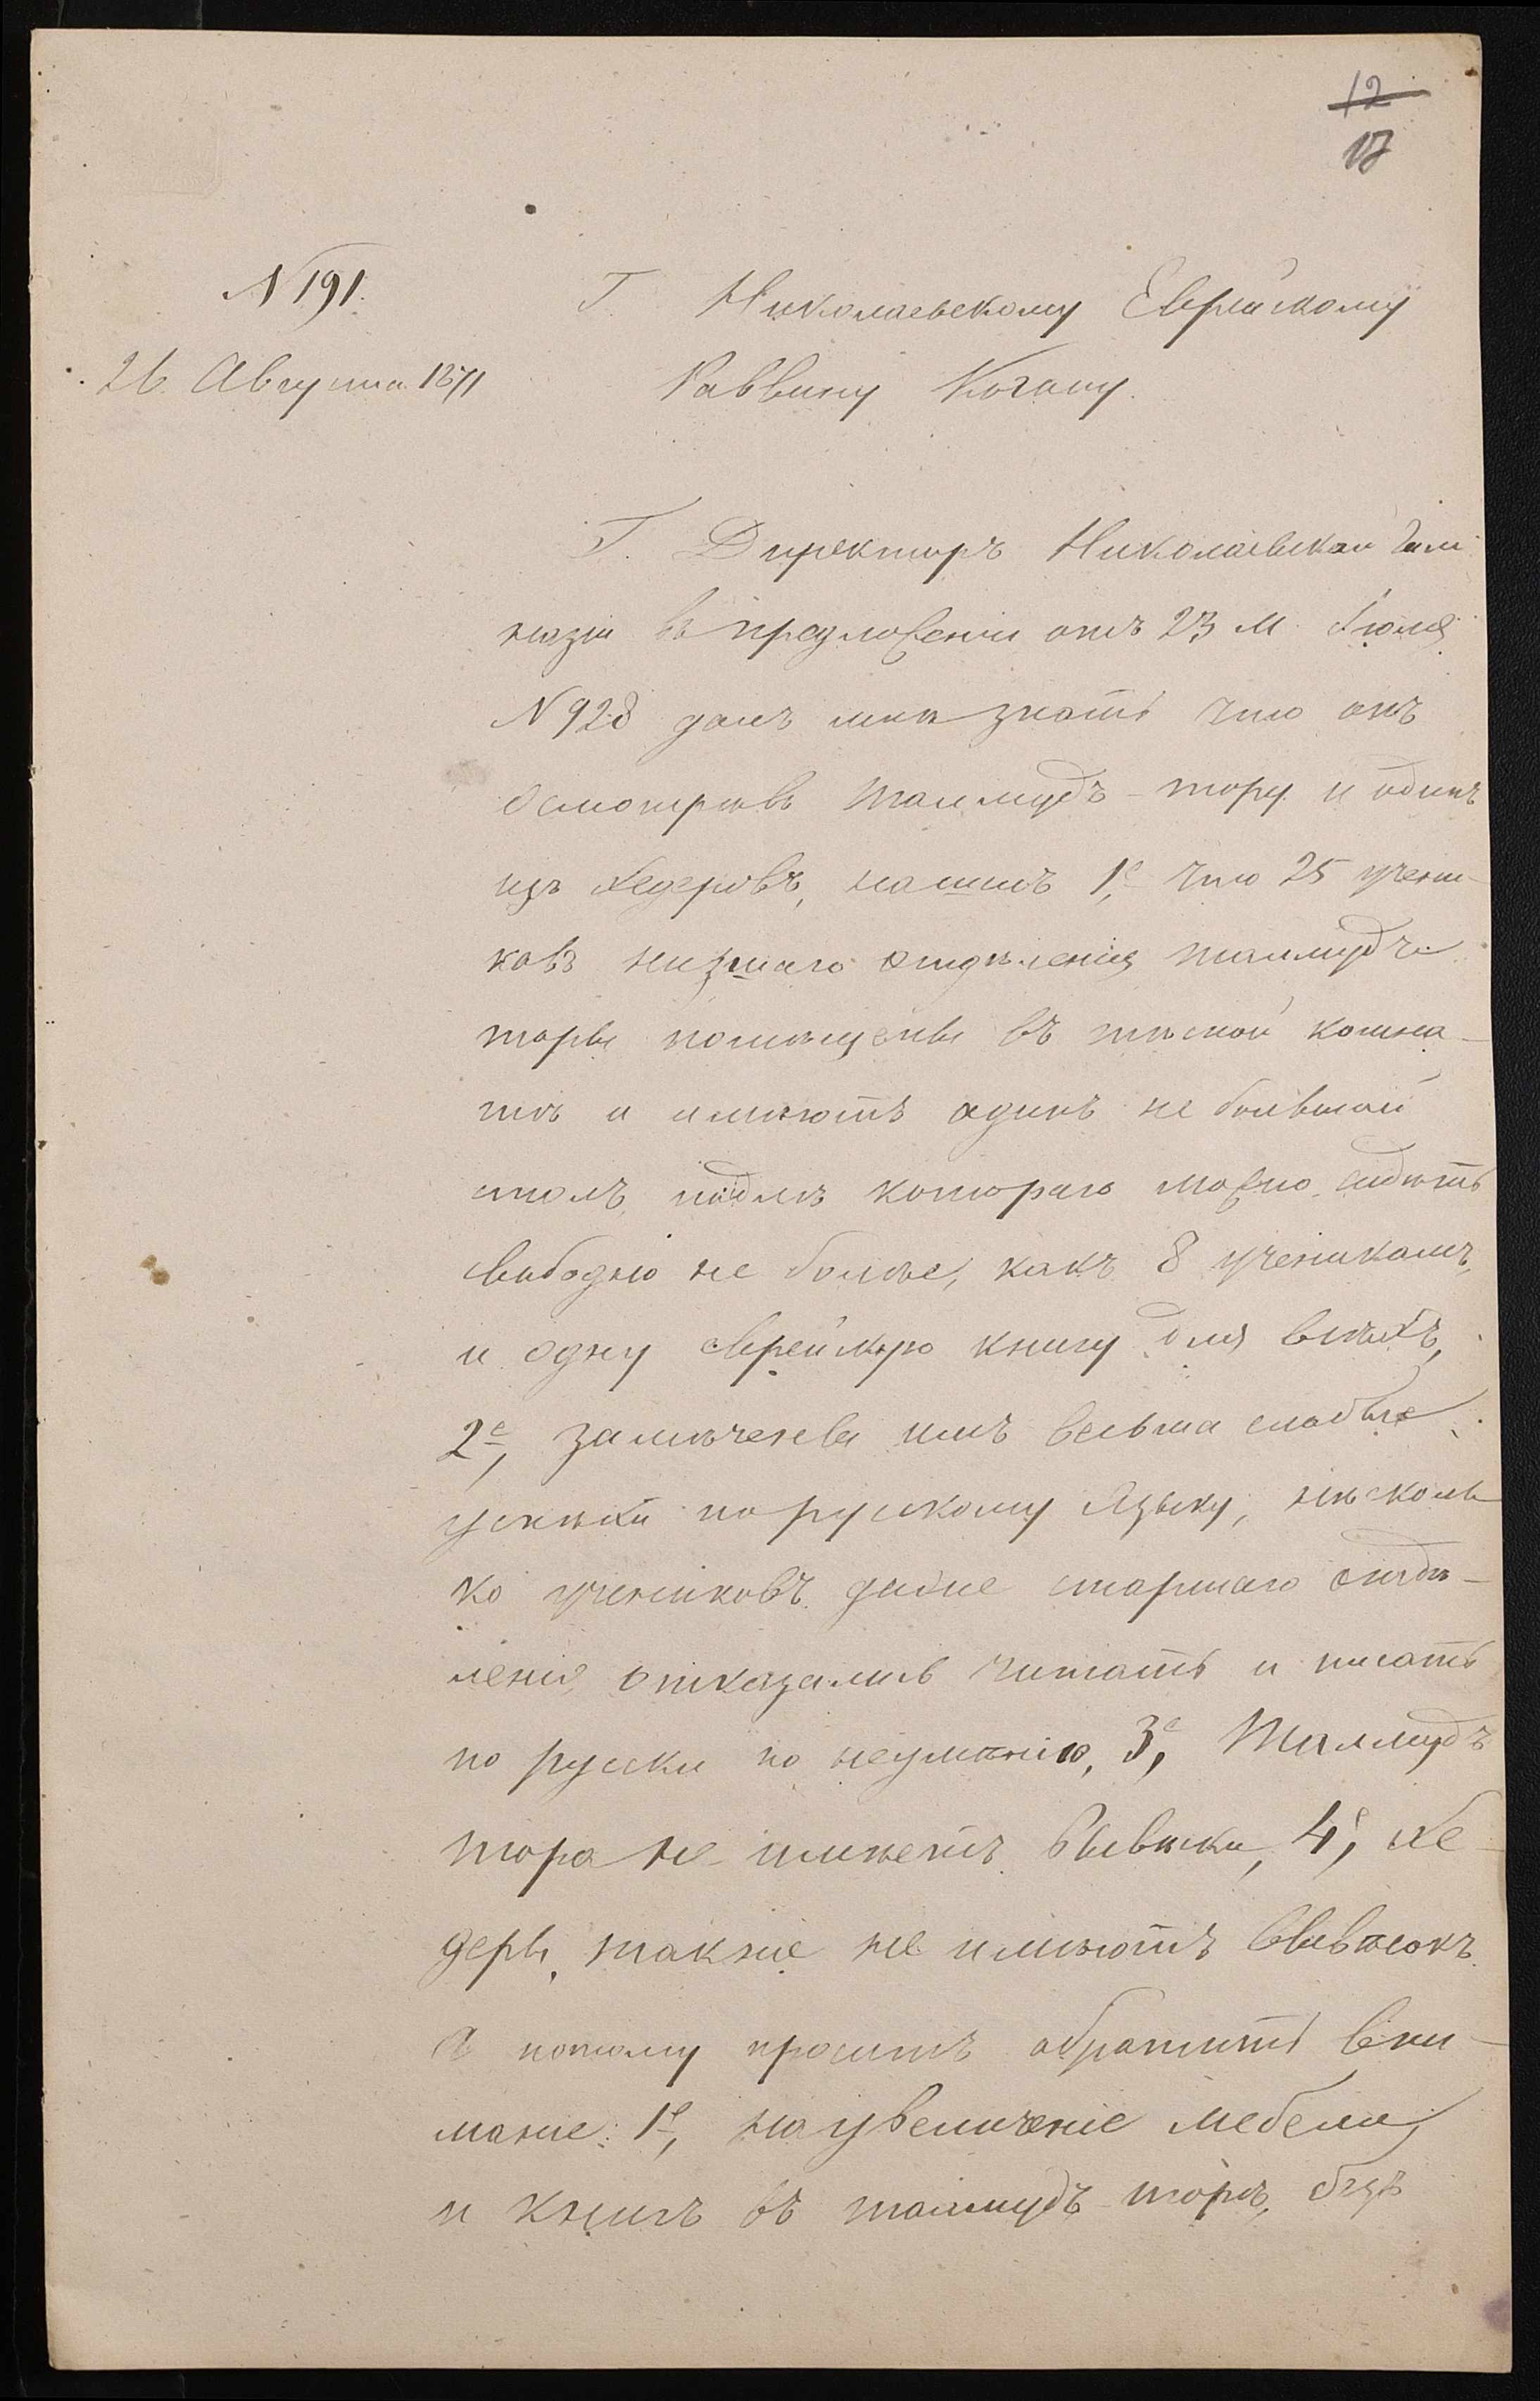 12
17
N 191.
Г. Николаевскому Еврейскому
26 Августа 1871
Раввину Когану.
Г. Директоръ Николаевской Гим
назіи въ предложеніи отъ 23 м. Іюля
N 928 далъ мнѣ знать что онъ
осмотрѣвъ талмудъ-тору и одинъ
изъ хедеровъ, нашелъ 1е, что 25 учени-
ковъ низшаго отдѣленія талмудъ
торы помѣщены въ тѣсной комна-
тѣ и имѣютъ одинъ не большой
столъ подлѣ котораго можно сидѣть
свободно не болѣе, какъ 8 ученикамъ,
и одну еврейскую книгу для всѣхъ,
2е, замѣчены имъ весьма слабые
успѣхи по русскому языку, нѣсколь
ко учениковъ даже старшаго отдѣ-
ленія отказались читать и писать
по русски по неумѣнію, 3е, Талмудъ
тора не имѣетъ вывѣски, 4е, хе-
деры также не имѣютъ вывѣсокъ.
А потому проситъ обратить вни-
маніе: 1е, на увеличеніе мебели,
и книгъ въ талмудъ-торѣ, безъ